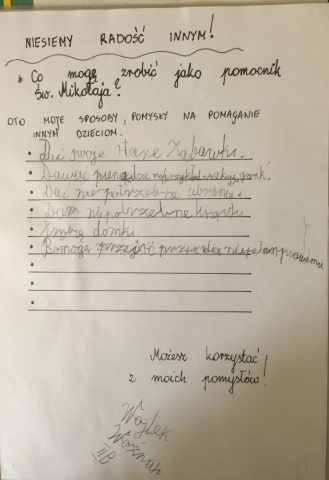 NIESIEMY RADOŚĆ INNYM!
* Co mogę zrobić jako pomocnik
św. Mikołaja?
OTO MOJE SPOSOBY, POMYSŁY NA POMAGANIE
INNYM DZIECIOM.
• Dać swoje stare zabawki.
• Dawać pieniądze na przykład na akcję
• Dać niepotrzebne ubrania.
• Dam niepotrzebne książki
• domki.
• Pomogę przejść przez
•
•
•
Możesz korzystać
z moich pomysłów!
Wojtek
II B